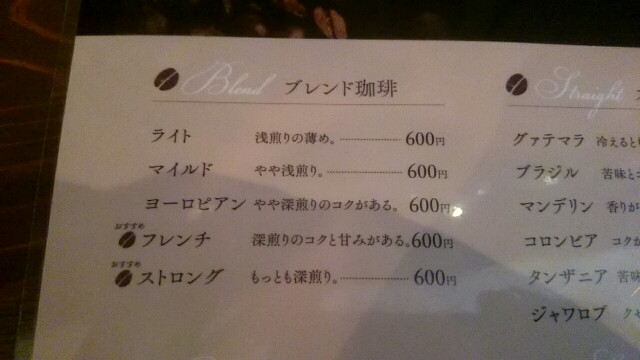 Blend ブレンド珈琲
ライト 浅煎りの薄め。 600円
マイルド やや浅煎り。 600円
ヨーロピアン やや深煎りのコクがある。 600円
おすすめ
フレンチ 深煎りのコクと甘みがある。 600円
おすすめ
ストロング もっとも深煎り。 600円
Straight
グァテマラ 冷えると
ブラジル 苦味とコ
マンデリン 香りが
コロンビア コクが
タンザニア 苦味
ジャワロブ クセ